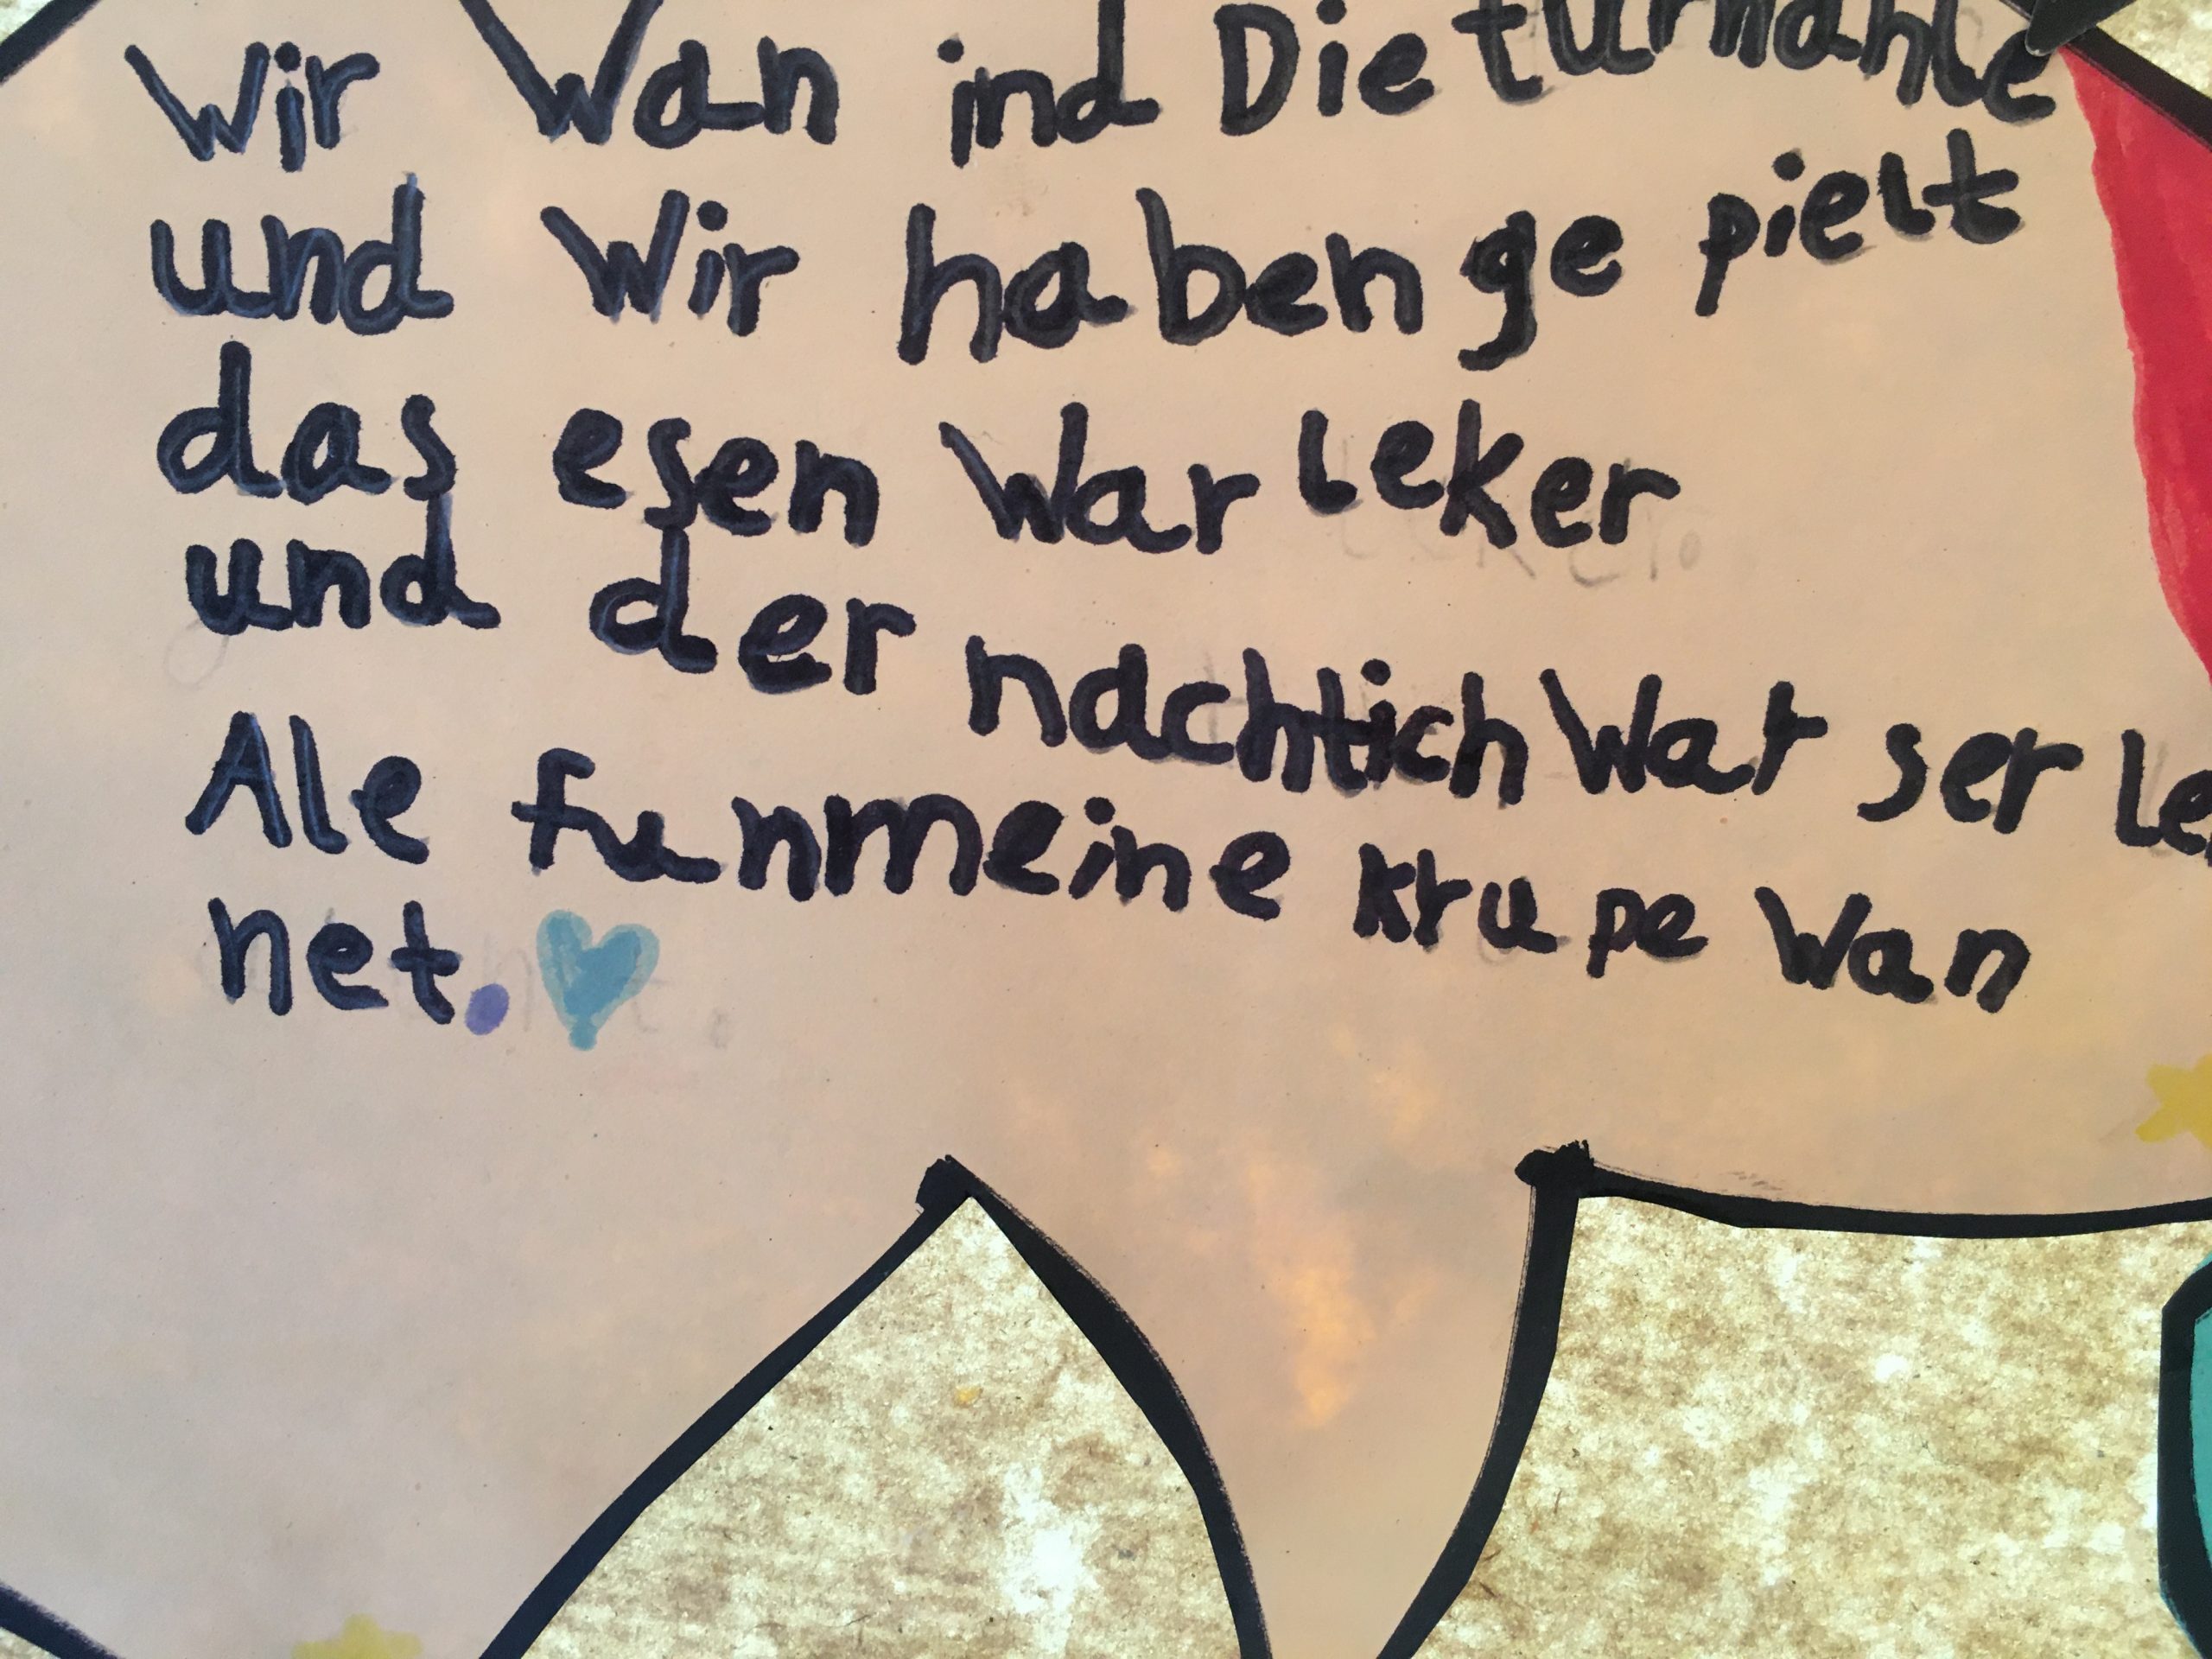 Wir Wan ind Die turnahle
und Wir haben ge pielt
das esen War leker
und der nachtich War ser le
Ale fun meine krupe Wan
net.